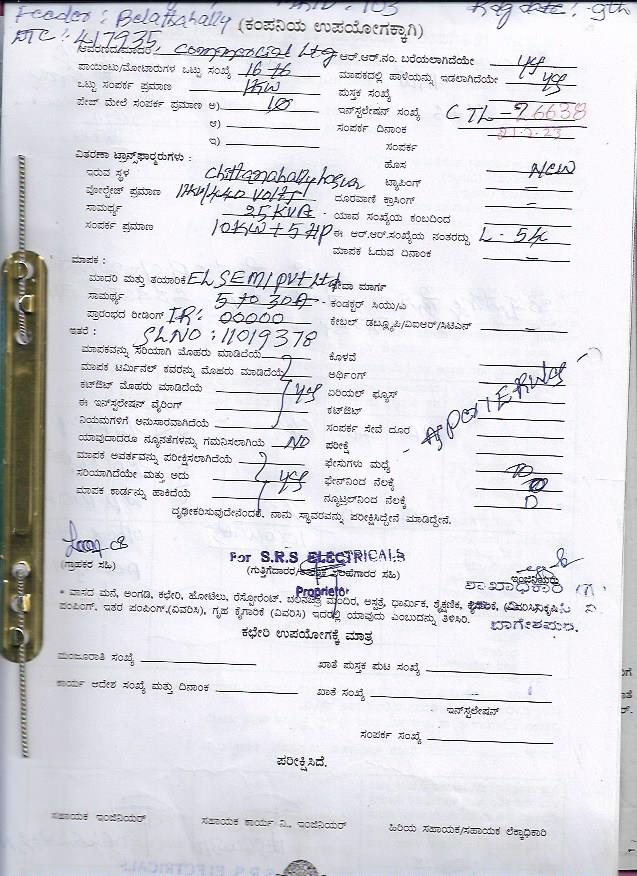 Feeder: Belathahally
(ಕಂಪನಿಯ ಉಪಯೋಗಕ್ಕಾಗಿ)
DTC: 417935
ಆವರಣದ/ಮಾದರಿ: Commercial Ltg ಆರ್.ಆರ್.ನಂ. ಬರೆಯಲಾಗಿದೆಯೇ yes
ಪಾಯಿಂಟು/ಮೋಟಾರುಗಳ ಒಟ್ಟು ಸಂಖ್ಯೆ ಮಾಪಕದಲ್ಲಿ ಹಾಳೆಯನ್ನು ಇಡಲಾಗಿದೆಯೇ yes
ಒಟ್ಟು ಸಂಪರ್ಕ ಪ್ರಮಾಣ 1KW ಪುಸ್ತಕ ಸಂಖ್ಯೆ
ಪೇಜ್ ಮೇಲೆ ಸಂಪರ್ಕ ಪ್ರಮಾಣ ಅ) 1Ø ಇನ್‌ಸ್ಟಲೇಷನ್ ಸಂಖ್ಯೆ CTL-76638
ಆ) ಸಂಪರ್ಕ ದಿನಾಂಕ
ಇ) ಸಂಪರ್ಕ
ವಿತರಣಾ ಟ್ರಾನ್ಸ್‌ಫಾರ್ಮರುಗಳು : ಹೊಸ New
ಇರುವ ಸ್ಥಳ ಟ್ಯಾಪಿಂಗ್ -
ವೋಲ್ಟೇಜ್ ಪ್ರಮಾಣ 11KV/440 Volts ದೂರವಾಣಿ ಕ್ರಾಸಿಂಗ್ -
ಸಾಮರ್ಥ್ಯ 25KVA ಯಾವ ಸಂಖ್ಯೆಯ ಕಂಬದಿಂದ -
ಸಂಪರ್ಕ ಪ್ರಮಾಣ 10KW+5HP ಈ ಆರ್.ಆರ್.ಸಂಖ್ಯೆಯ ನಂತರದ್ದು
ಮಾಪಕ ಓದುವ ದಿನಾಂಕ -
ಮಾಪಕ :
ಮಾದರಿ ಮತ್ತು ತಯಾರಿಕೆ ELSEMI PVt Ltd ಸೇವಾ ಮಾರ್ಗ
ಸಾಮರ್ಥ್ಯ 5 to 30A ಕಂಡಕ್ಟರ್ ಸಿಯು/ಎ
ಪ್ರಾರಂಭದ ರೀಡಿಂಗ್ IR: 00000 ಕೇಬಲ್ ಡಬ್ಲ್ಯೂಪಿ/ಐಐಆರ್/ಸಿಟಿಎಸ್ -
ಇತರೆ : SLNO: 11019378
ಮಾಪಕವನ್ನು ಸರಿಯಾಗಿ ಮೊಹರು ಮಾಡಿದೆಯೆ ಕೊಳವೆ
ಮಾಪಕ ಟರ್ಮಿನಲ್ ಕವರನ್ನು ಮೊಹರು ಮಾಡಿದೆಯೆ ಅರ್ಥಿಂಗ್
ಕಟ್‌ಔಟ್ ಮೊಹರು ಮಾಡಿದೆಯೆ yes ಏರಿಯಲ್ ಫ್ಯೂಸ್
ಈ ಇನ್‌ಸ್ಟಲೇಷನ್ ವೈರಿಂಗ್ ಕಟ್‌ಔಟ್
ನಿಯಮಗಳಿಗೆ ಅನುಸಾರವಾಗಿದೆಯೆ ಸಂಪರ್ಕ ಸೇವೆ ದೂರ
ಯಾವುದಾದರೂ ನ್ಯೂನತೆಗಳನ್ನು ಗಮನಿಸಲಾಗಿಯೆ NO ಪರೀಕ್ಷೆ
ಮಾಪಕ ಅವರ್ತವನ್ನು ಪರೀಕ್ಷಿಸಲಾಗಿದೆಯೆ ಫೇಸುಗಳು ಮಧ್ಯೆ
ಸರಿಯಾಗಿದೆಯೇ ಮತ್ತು ಅದು yes ಫೇಸ್‌ನಿಂದ ನೆಲಕ್ಕೆ
ಮಾಪಕ ಕಾರ್ಡನ್ನು ಹಾಕಿದೆಯೆ ನ್ಯೂಟ್ರಲ್‌ನಿಂದ ನೆಲಕ್ಕೆ
ದೃಢೀಕರಿಸುವುದೇನೆಂದರೆ, ನಾನು ಸ್ಥಾವರವನ್ನು ಪರೀಕ್ಷಿಸಿದ್ದೇನೆ ಮಾಡಿದ್ದೇನೆ.
For S.R.S ELECTRICALS
(ಗ್ರಾಹಕರ ಸಹಿ) ಇಂಜಿನಿಯರ್
Proprietor ಶಾಖಾಧಿಕಾರಿ
* ವಾಸದ ಮನೆ, ಅಂಗಡಿ, ಕಛೇರಿ, ಹೋಟೆಲು, ರೆಸ್ಟೋರೆಂಟ್, ಚಲನಚಿತ್ರ ಮಂದಿರ, ಆಸ್ಪತ್ರೆ, ಧಾರ್ಮಿಕ, ಶೈಕ್ಷಣಿಕ,
ಪಂಪಿಂಗ್, ಇತರ ಪಂಪಿಂಗ್,(ವಿವರಿಸಿ), ಗೃಹ ಕೈಗಾರಿಕೆ (ವಿವರಿಸಿ) ಇದರಲ್ಲಿ ಯಾವುದು ಎಂಬುದನ್ನು ತಿಳಿಸಿರಿ.
ಕಛೇರಿ ಉಪಯೋಗಕ್ಕೆ ಮಾತ್ರ
ಮಂಜೂರಾತಿ ಸಂಖ್ಯೆ ಖಾತೆ ಪುಸ್ತಕ ಪುಟ ಸಂಖ್ಯೆ
ಕಾರ್ಯ ಆದೇಶ ಸಂಖ್ಯೆ ಮತ್ತು ದಿನಾಂಕ ಖಾತೆ ಸಂಖ್ಯೆ
ಇನ್‌ಸ್ಟಲೇಷನ್
ಸಂಪರ್ಕ ಸಂಖ್ಯೆ
ಪರೀಕ್ಷಿಸಿದೆ.
ಸಹಾಯಕ ಇಂಜಿನಿಯರ್ ಸಹಾಯಕ ಕಾರ್ಯ ನಿ., ಇಂಜಿನಿಯರ್ ಹಿರಿಯ ಸಹಾಯಕ/ಸಹಾಯಕ ಲೆಕ್ಕಾಧಿಕಾರಿ